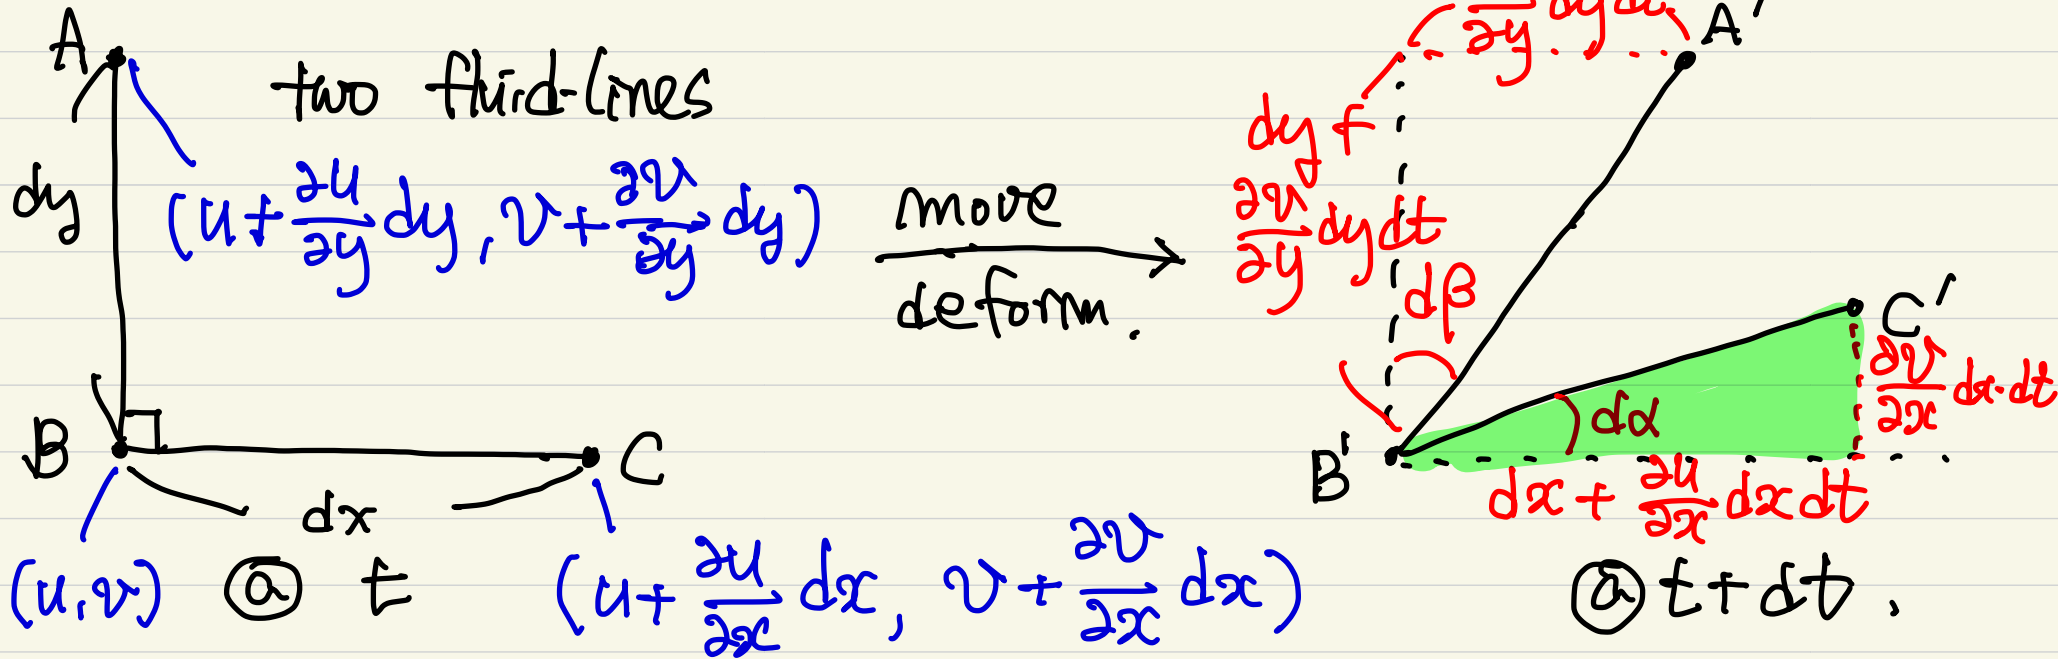 A
two fluid-lines
dy
(u+∂u/∂y dy, v+∂v/∂y dy)
move
deform.
B
C
dx
(u,v)
@ t
(u+∂u/∂x dx, v+∂v/∂x dx)
∂y dydt
A'
dy+
∂v/∂y dydt
dβ
C'
∂v/∂x dx·dt
dα
B'
dx+∂u/∂x dxdt
@ t+dt.